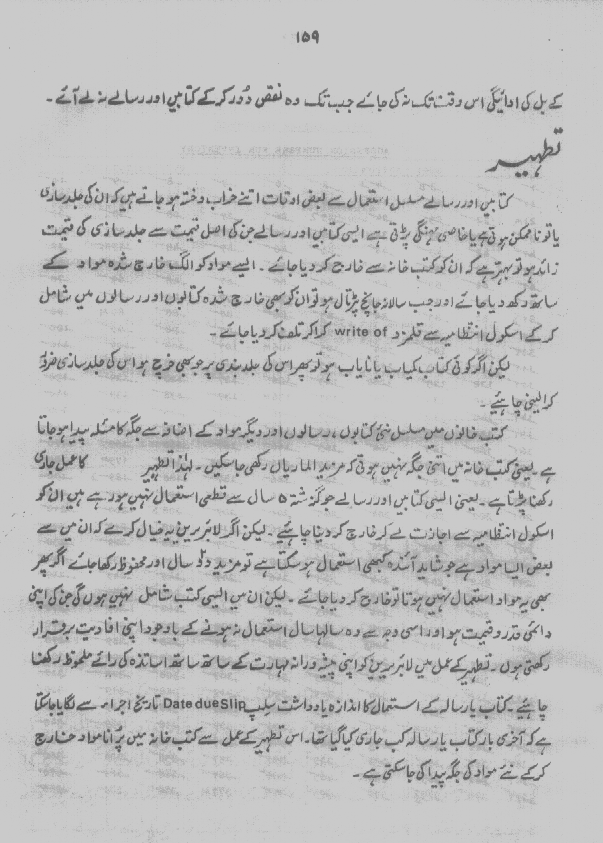 ۱۵۹
کے بل کی ادائیگی اس وقت تک نہ کی جائے جب تک وہ نقص دُور کر کے کتابیں اور رسالے نہ لے آئے۔
تطہیر
کتابیں اور رسالے مسلسل استعمال سے بعض اوقات اتنے خراب وخستہ ہو جاتے ہیں کہ ان کی جلد سازی
یا تو ناممکن ہوتی ہے یا خاصی مہنگی پڑتی ہے ایسی کتابیں اور رسالے جن کی اصل قیمت سے جلد سازی کی قیمت
زائد ہو تو بہتر ہے کہ ان کو کتب خانہ سے خارج کر دیا جائے۔ ایسے مواد کو الگ خارج شدہ مواد کے
ساتھ رکھ دیا جائے اور جب سالانہ جانچ پڑتال ہو تو ان کو بھی خارج شدہ کتابوں اور رسالوں میں شامل
کر کے اسکول انتظامیہ سے قلمزد write of کرا کر تلف کر دیا جائے۔
لیکن اگر کوئی کتاب کمیاب یا نایاب ہو تو پھر اس کی جلد بندی پر جو بھی خرچ ہو اس کی جلد سازی ضرور
کرا لینی چاہئیے۔
کتب خانوں میں مسلسل نئی کتابوں، رسالوں اور دیگر مواد کے اضافہ سے جگہ کا مسئلہ پیدا ہو جاتا
ہے۔ یعنی کتب خانہ میں اتنی جگہ نہیں ہوتی کہ مزید الماریاں رکھی جا سکیں۔ لہٰذا تطہیر کا عمل جاری
رکھنا پڑتا ہے۔ یعنی ایسی کتابیں اور رسالے جو گزشتہ ۵ سال سے قطعی استعمال نہیں ہو رہے ہیں ان کو
اسکول انتظامیہ سے اجازت لے کر خارج کر دینا چاہئیے۔ لیکن اگر لائبریرین یہ خیال کرے کہ ان میں سے
بعض ایسا مواد ہے جو شاید آئندہ کبھی استعمال ہو سکتا ہے تو مزید دس سال اور محفوظ رکھا جائے اگر پھر
بھی یہ مواد استعمال نہیں ہوتا تو خارج کر دیا جائے۔ لیکن ان میں ایسی کتب شامل نہیں ہوں گی جن کی اپنی
دائمی قدر و قیمت ہو اور اسی وجہ سے وہ سالہا سال استعمال نہ ہونے کے باوجود اپنی افادیت برقرار
رکھتی ہوں۔ تطہیر کے عمل میں لائبریرین کو اپنی پیشہ ورانہ مہارت کے ساتھ ساتھ اساتذہ کی رائے ملحوظ رکھنا
چاہئیے۔ کتاب یا رسالہ کے استعمال کا اندازہ یادداشت سلپ Date due Slip تاریخ اجراء سے لگایا جا سکتا
ہے کہ آخری بار کتاب یا رسالہ کب جاری کیا گیا تھا۔ اس تطہیر کے عمل سے کتب خانہ میں پُرانا مواد خارج
کر کے نئے مواد کی جگہ پیدا کی جا سکتی ہے۔